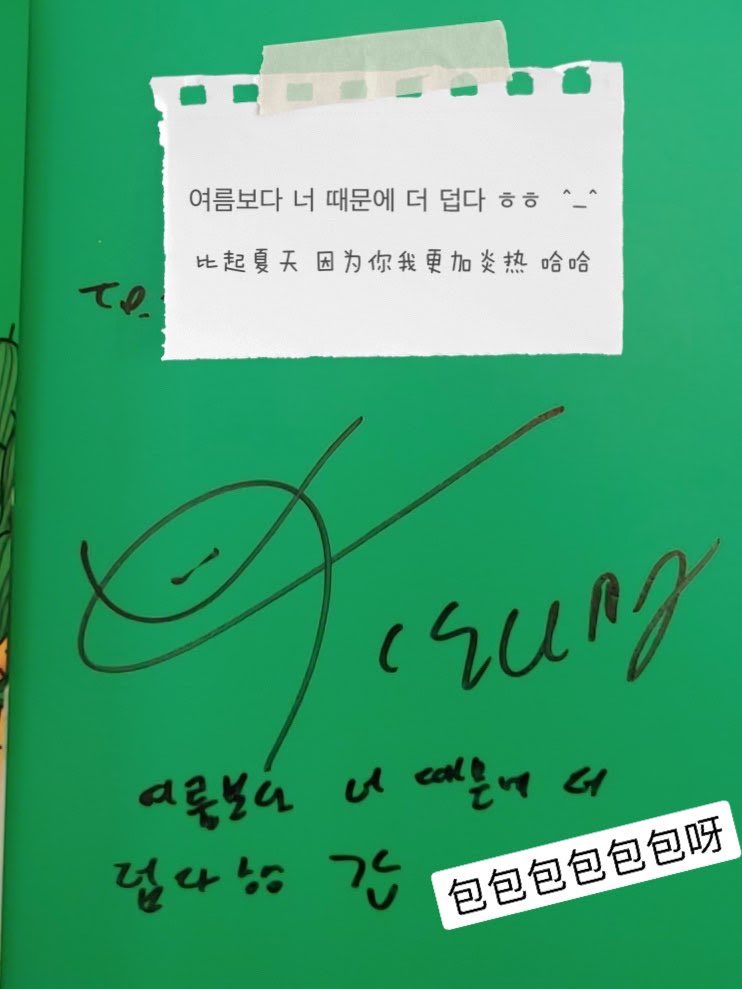 여름보다 너 때문에 더 덥다 ㅎㅎ ^_^
比起夏天 因为你我更加炎热 哈哈
To.
여름보다 너 때문에 더
덥다 ㅎㅎ
包包包包包包呀